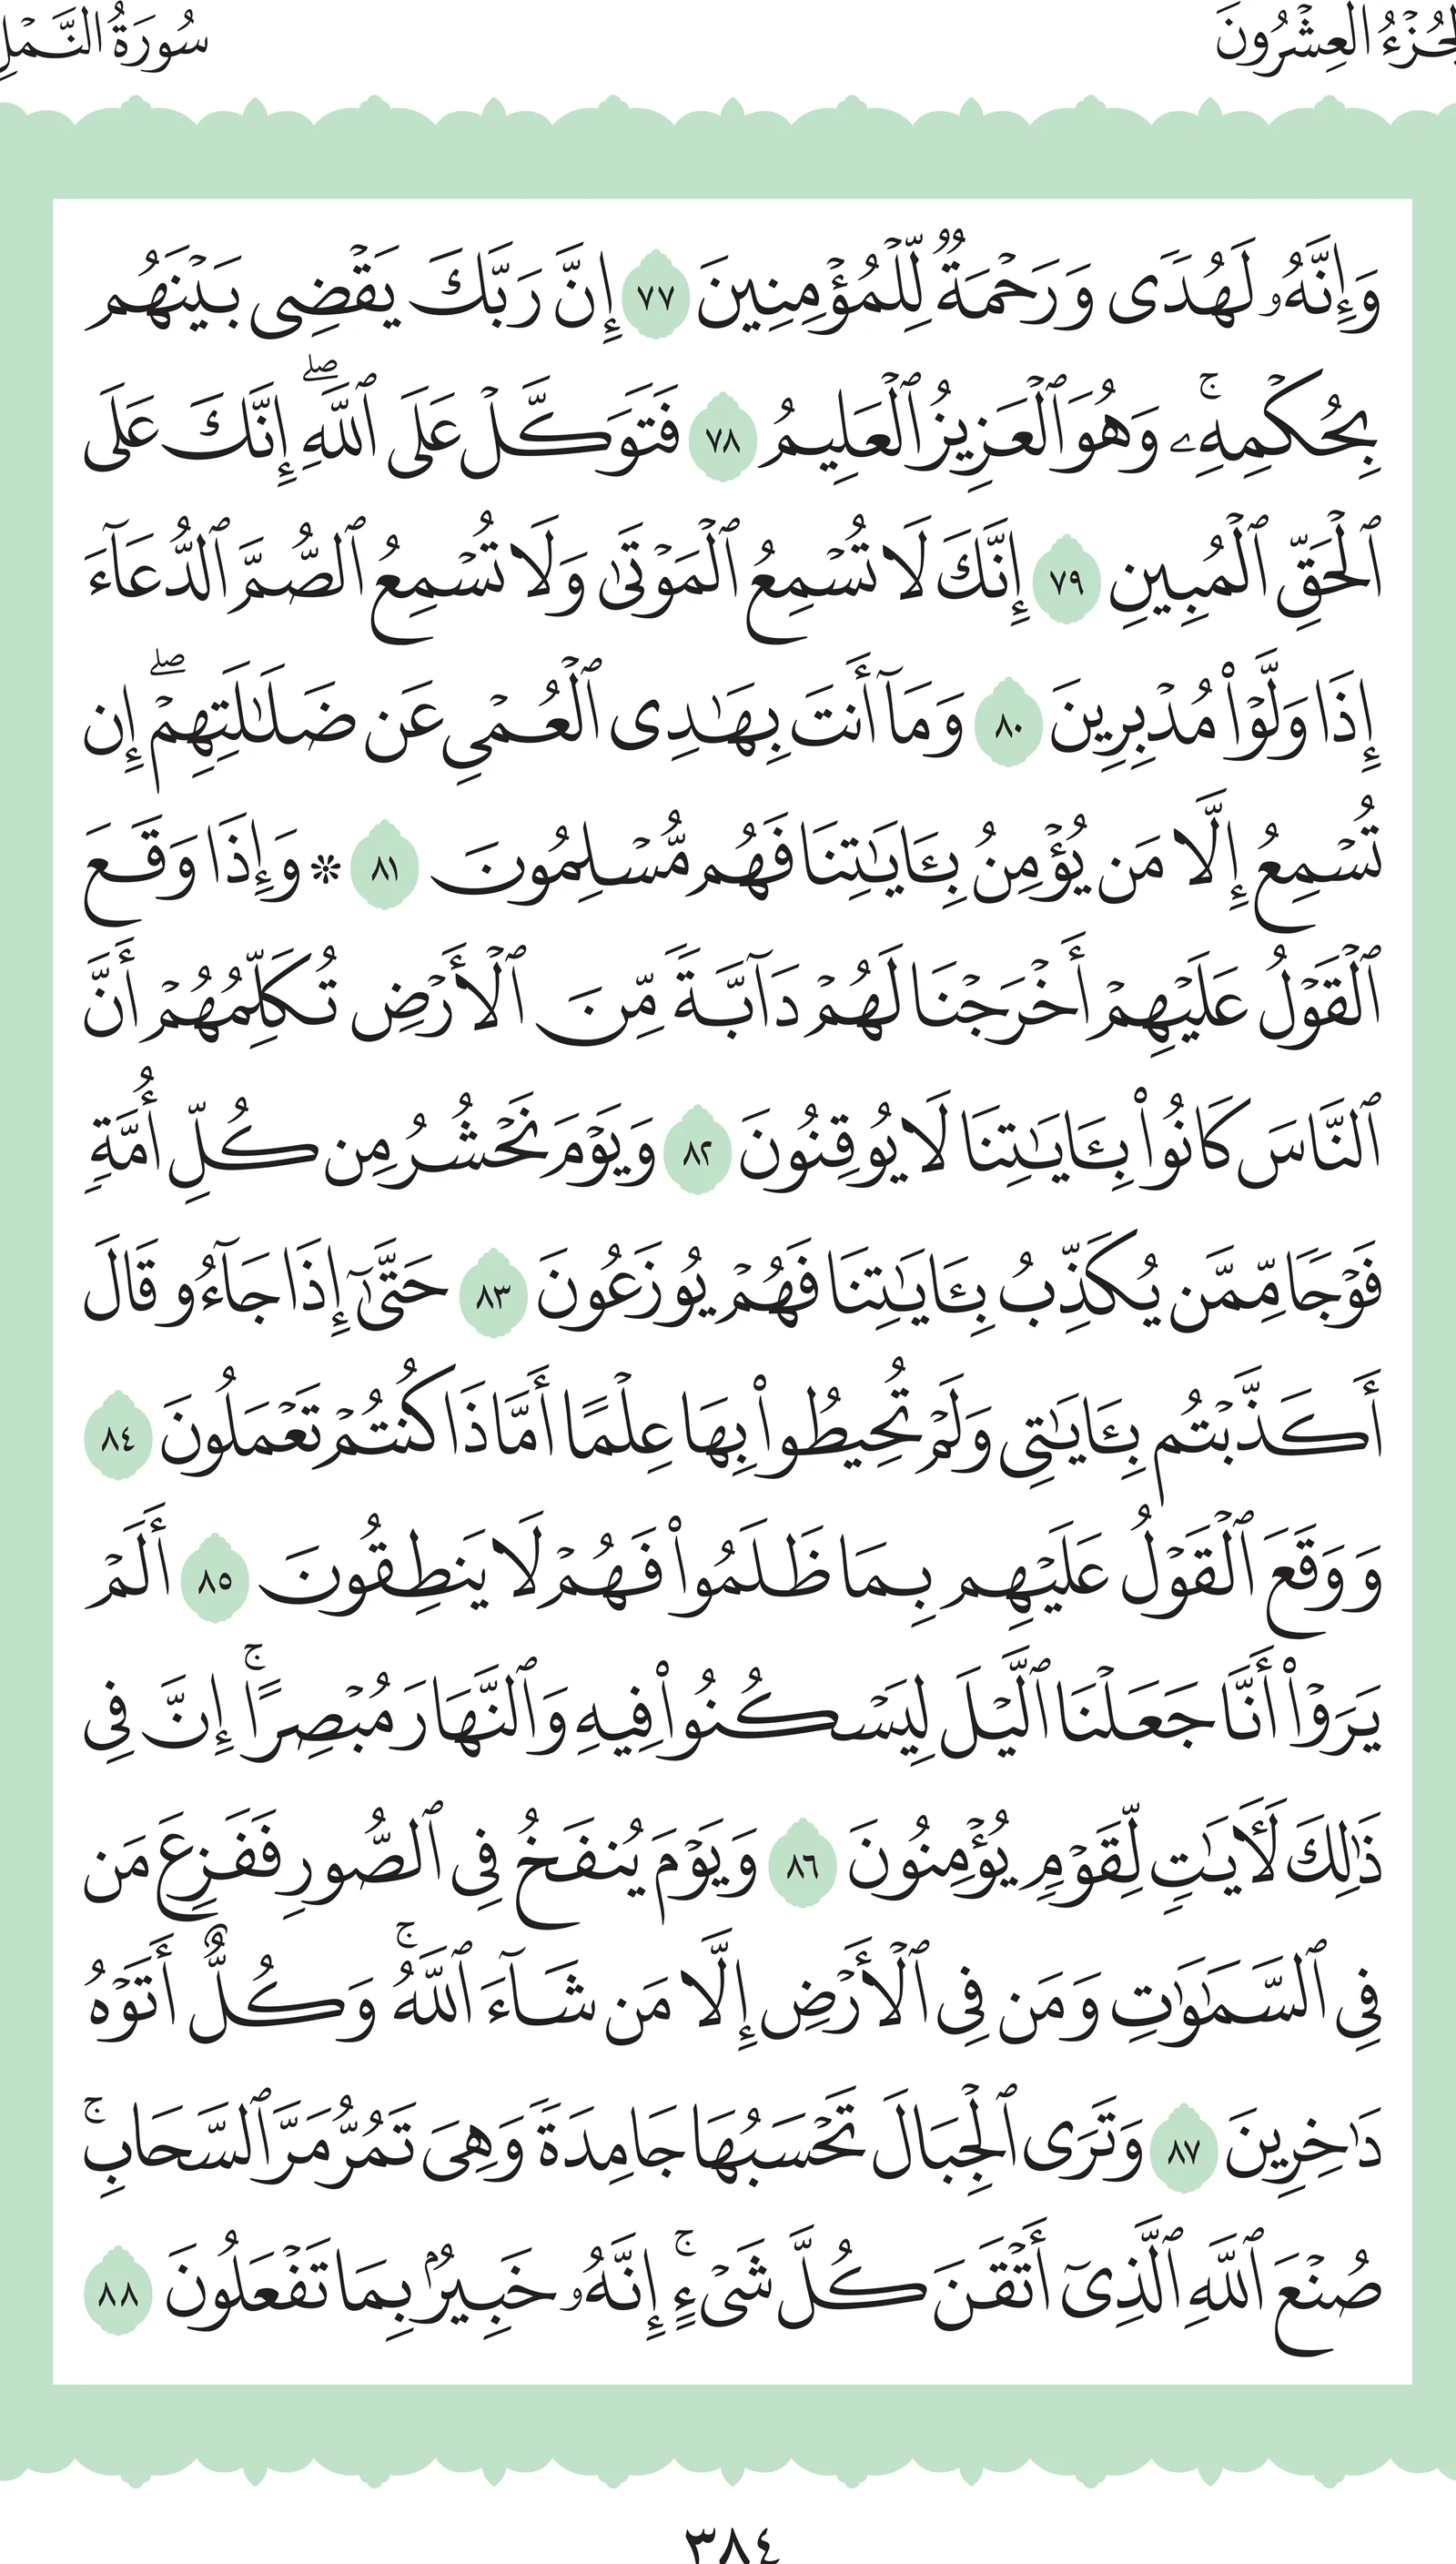 الجُزْءُ العِشْرُونَ سُورَةُ النَّمْلِ
وَإِنَّهُۥ لَهُدٗى وَرَحۡمَةٞ لِّلۡمُؤۡمِنِينَ ٧٧ إِنَّ رَبَّكَ يَقۡضِي بَيۡنَهُم
بِحُكۡمِهِۦۚ وَهُوَ ٱلۡعَزِيزُ ٱلۡعَلِيمُ ٧٨ فَتَوَكَّلۡ عَلَى ٱللَّهِۖ إِنَّكَ عَلَى
ٱلۡحَقِّ ٱلۡمُبِينِ ٧٩ إِنَّكَ لَا تُسۡمِعُ ٱلۡمَوۡتَىٰ وَلَا تُسۡمِعُ ٱلصُّمَّ ٱلدُّعَآءَ
إِذَا وَلَّوۡاْ مُدۡبِرِينَ ٨٠ وَمَآ أَنتَ بِهَٰدِي ٱلۡعُمۡيِ عَن ضَلَٰلَتِهِمۡۖ إِن
تُسۡمِعُ إِلَّا مَن يُؤۡمِنُ بِـَٔايَٰتِنَا فَهُم مُّسۡلِمُونَ ٨١ ۞ وَإِذَا وَقَعَ
ٱلۡقَوۡلُ عَلَيۡهِمۡ أَخۡرَجۡنَا لَهُمۡ دَآبَّةٗ مِّنَ ٱلۡأَرۡضِ تُكَلِّمُهُمۡ أَنَّ
ٱلنَّاسَ كَانُواْ بِـَٔايَٰتِنَا لَا يُوقِنُونَ ٨٢ وَيَوۡمَ نَحۡشُرُ مِن كُلِّ أُمَّةٖ
فَوۡجٗا مِّمَّن يُكَذِّبُ بِـَٔايَٰتِنَا فَهُمۡ يُوزَعُونَ ٨٣ حَتَّىٰٓ إِذَا جَآءُو قَالَ
أَكَذَّبۡتُم بِـَٔايَٰتِي وَلَمۡ تُحِيطُواْ بِهَا عِلۡمًا أَمَّاذَا كُنتُمۡ تَعۡمَلُونَ ٨٤
وَوَقَعَ ٱلۡقَوۡلُ عَلَيۡهِم بِمَا ظَلَمُواْ فَهُمۡ لَا يَنطِقُونَ ٨٥ أَلَمۡ
يَرَوۡاْ أَنَّا جَعَلۡنَا ٱلَّيۡلَ لِيَسۡكُنُواْ فِيهِ وَٱلنَّهَارَ مُبۡصِرًاۚ إِنَّ فِي
ذَٰلِكَ لَأٓيَٰتٖ لِّقَوۡمٖ يُؤۡمِنُونَ ٨٦ وَيَوۡمَ يُنفَخُ فِي ٱلصُّورِ فَفَزِعَ مَن
فِي ٱلسَّمَٰوَٰتِ وَمَن فِي ٱلۡأَرۡضِ إِلَّا مَن شَآءَ ٱللَّهُۚ وَكُلٌّ أَتَوۡهُ
دَٰخِرِينَ ٨٧ وَتَرَى ٱلۡجِبَالَ تَحۡسَبُهَا جَامِدَةٗ وَهِيَ تَمُرُّ مَرَّ ٱلسَّحَابِۚ
صُنۡعَ ٱللَّهِ ٱلَّذِيٓ أَتۡقَنَ كُلَّ شَيۡءٍۚ إِنَّهُۥ خَبِيرُۢ بِمَا تَفۡعَلُونَ ٨٨
٣٨٤